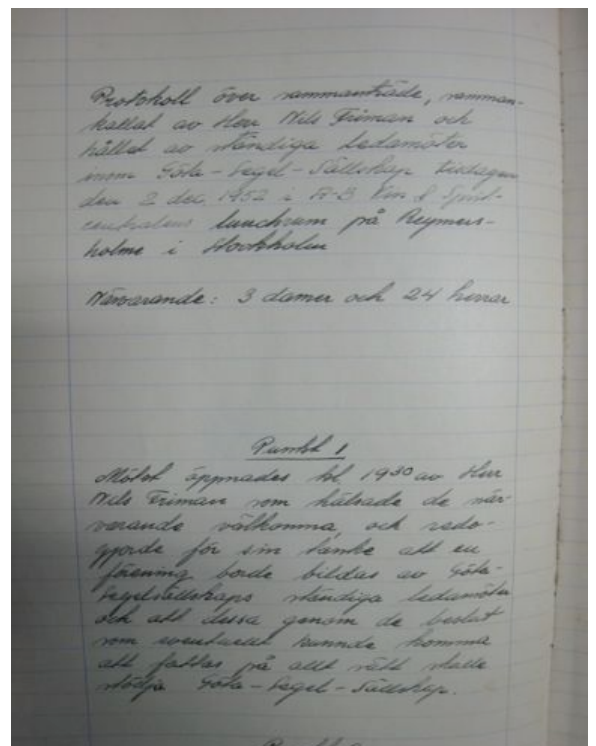 Protokoll över sammanträde, samman-
kallat av Herr Nils Friman och
hållet av ständiga ledamöter
inom Göta-Segel-Sällskap tisdagen
den 2 dec. 1952 i A-B Vin & Sprit-
centralens lunchrum på Reymers-
holme i Stockholm
Närvarande: 3 damer och 24 herrar
Punkt 1
Mötet öppnades kl. 19³⁰ av Herr
Nils Friman som hälsade de när-
varande välkomna, och redo-
gjorde för sin tanke att en
förening borde bildas av Göta-
Segelsällskaps ständiga ledamöter
och att dessa genom de beslut
som eventuellt kunnde komma
att fattas på allt sätt skulle
stödja Göta-Segel-Sällskap.